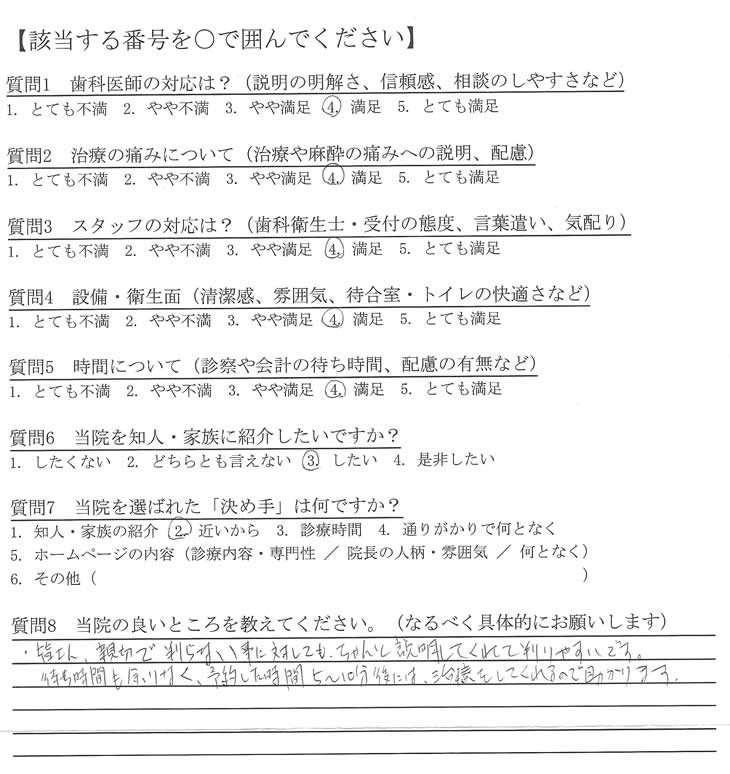 【該当する番号を○で囲んでください】
質問1 歯科医師の対応は？（説明の明解さ、信頼感、相談のしやすさなど）
1. とても不満 2. やや不満 3. やや満足 4. 満足 5. とても満足
質問2 治療の痛みについて（治療や麻酔の痛みへの説明、配慮）
1. とても不満 2. やや不満 3. やや満足 4. 満足 5. とても満足
質問3 スタッフの対応は？（歯科衛生士・受付の態度、言葉遣い、気配り）
1. とても不満 2. やや不満 3. やや満足 4. 満足 5. とても満足
質問4 設備・衛生面（清潔感、雰囲気、待合室・トイレの快適さなど）
1. とても不満 2. やや不満 3. やや満足 4. 満足 5. とても満足
質問5 時間について（診察や会計の待ち時間、配慮の有無など）
1. とても不満 2. やや不満 3. やや満足 4. 満足 5. とても満足
質問6 当院を知人・家族に紹介したいですか？
1. したくない 2. どちらとも言えない 3. したい 4. 是非したい
質問7 当院を選ばれた「決め手」は何ですか？
1. 知人・家族の紹介 2. 近いから 3. 診療時間 4. 通りがかりで何となく
5. ホームページの内容（診療内容・専門性 ／ 院長の人柄・雰囲気 ／ 何となく）
6. その他（ ）
質問8 当院の良いところを教えてください。（なるべく具体的にお願いします）
・皆さん、親切で判らない事に対しても、ちゃんと説明してくれて判りやすいです。
待ち時間も余りなく、予約した時間5〜10分後には、治療をしてくれるので助かります。